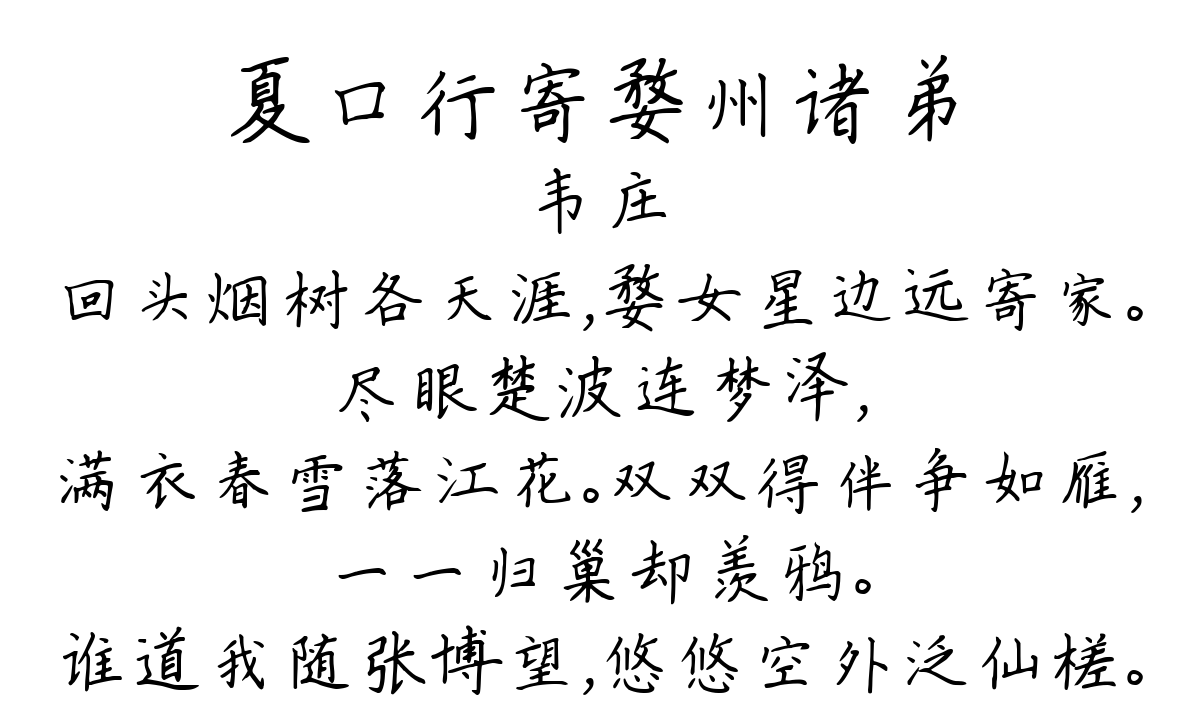 夏口行寄婺州诸弟
韦庄
回头烟树各天涯,婺女星边远寄家。
尽眼楚波连梦泽,
满衣春雪落江花。双双得伴争如雁,
一一归巢却羡鸦。
谁道我随张博望,悠悠空外泛仙槎。